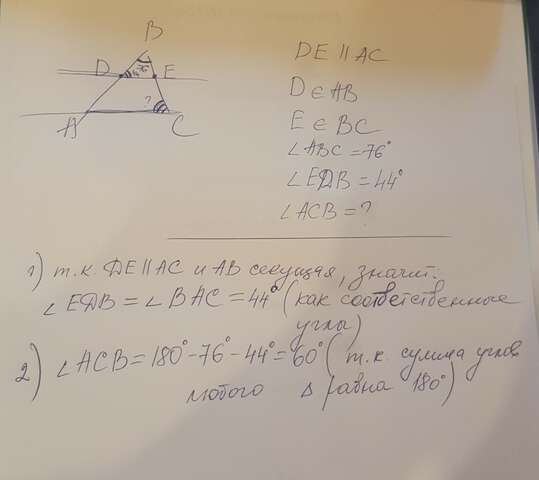 B
D 44° 76° E
? 
A C
DE || AC
D ∈ AB
E ∈ BC
∠ABC = 76°
∠EDB = 44°
∠ACB = ?
1) т.к. DE || AC и AB секущая, значит:
∠EDB = ∠BAC = 44° (как соответственные
углы)
2) ∠ACB = 180° - 76° - 44° = 60° (т.к. сумма углов
любого Δ равна 180°)